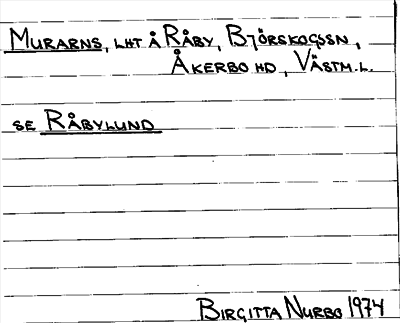 Murarns, lht å Råby, Björskogssn,
Åkerbo hd, Västm.l.
se Råbylund
Birgitta Nurbo 1974